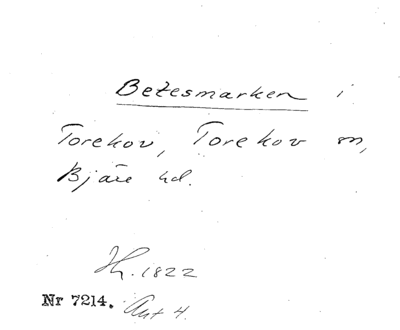 Betesmarken i
Torekov, Torekov sn,
Bjäre hd.
Hr. 1822
Nr 7214. Akt 4.